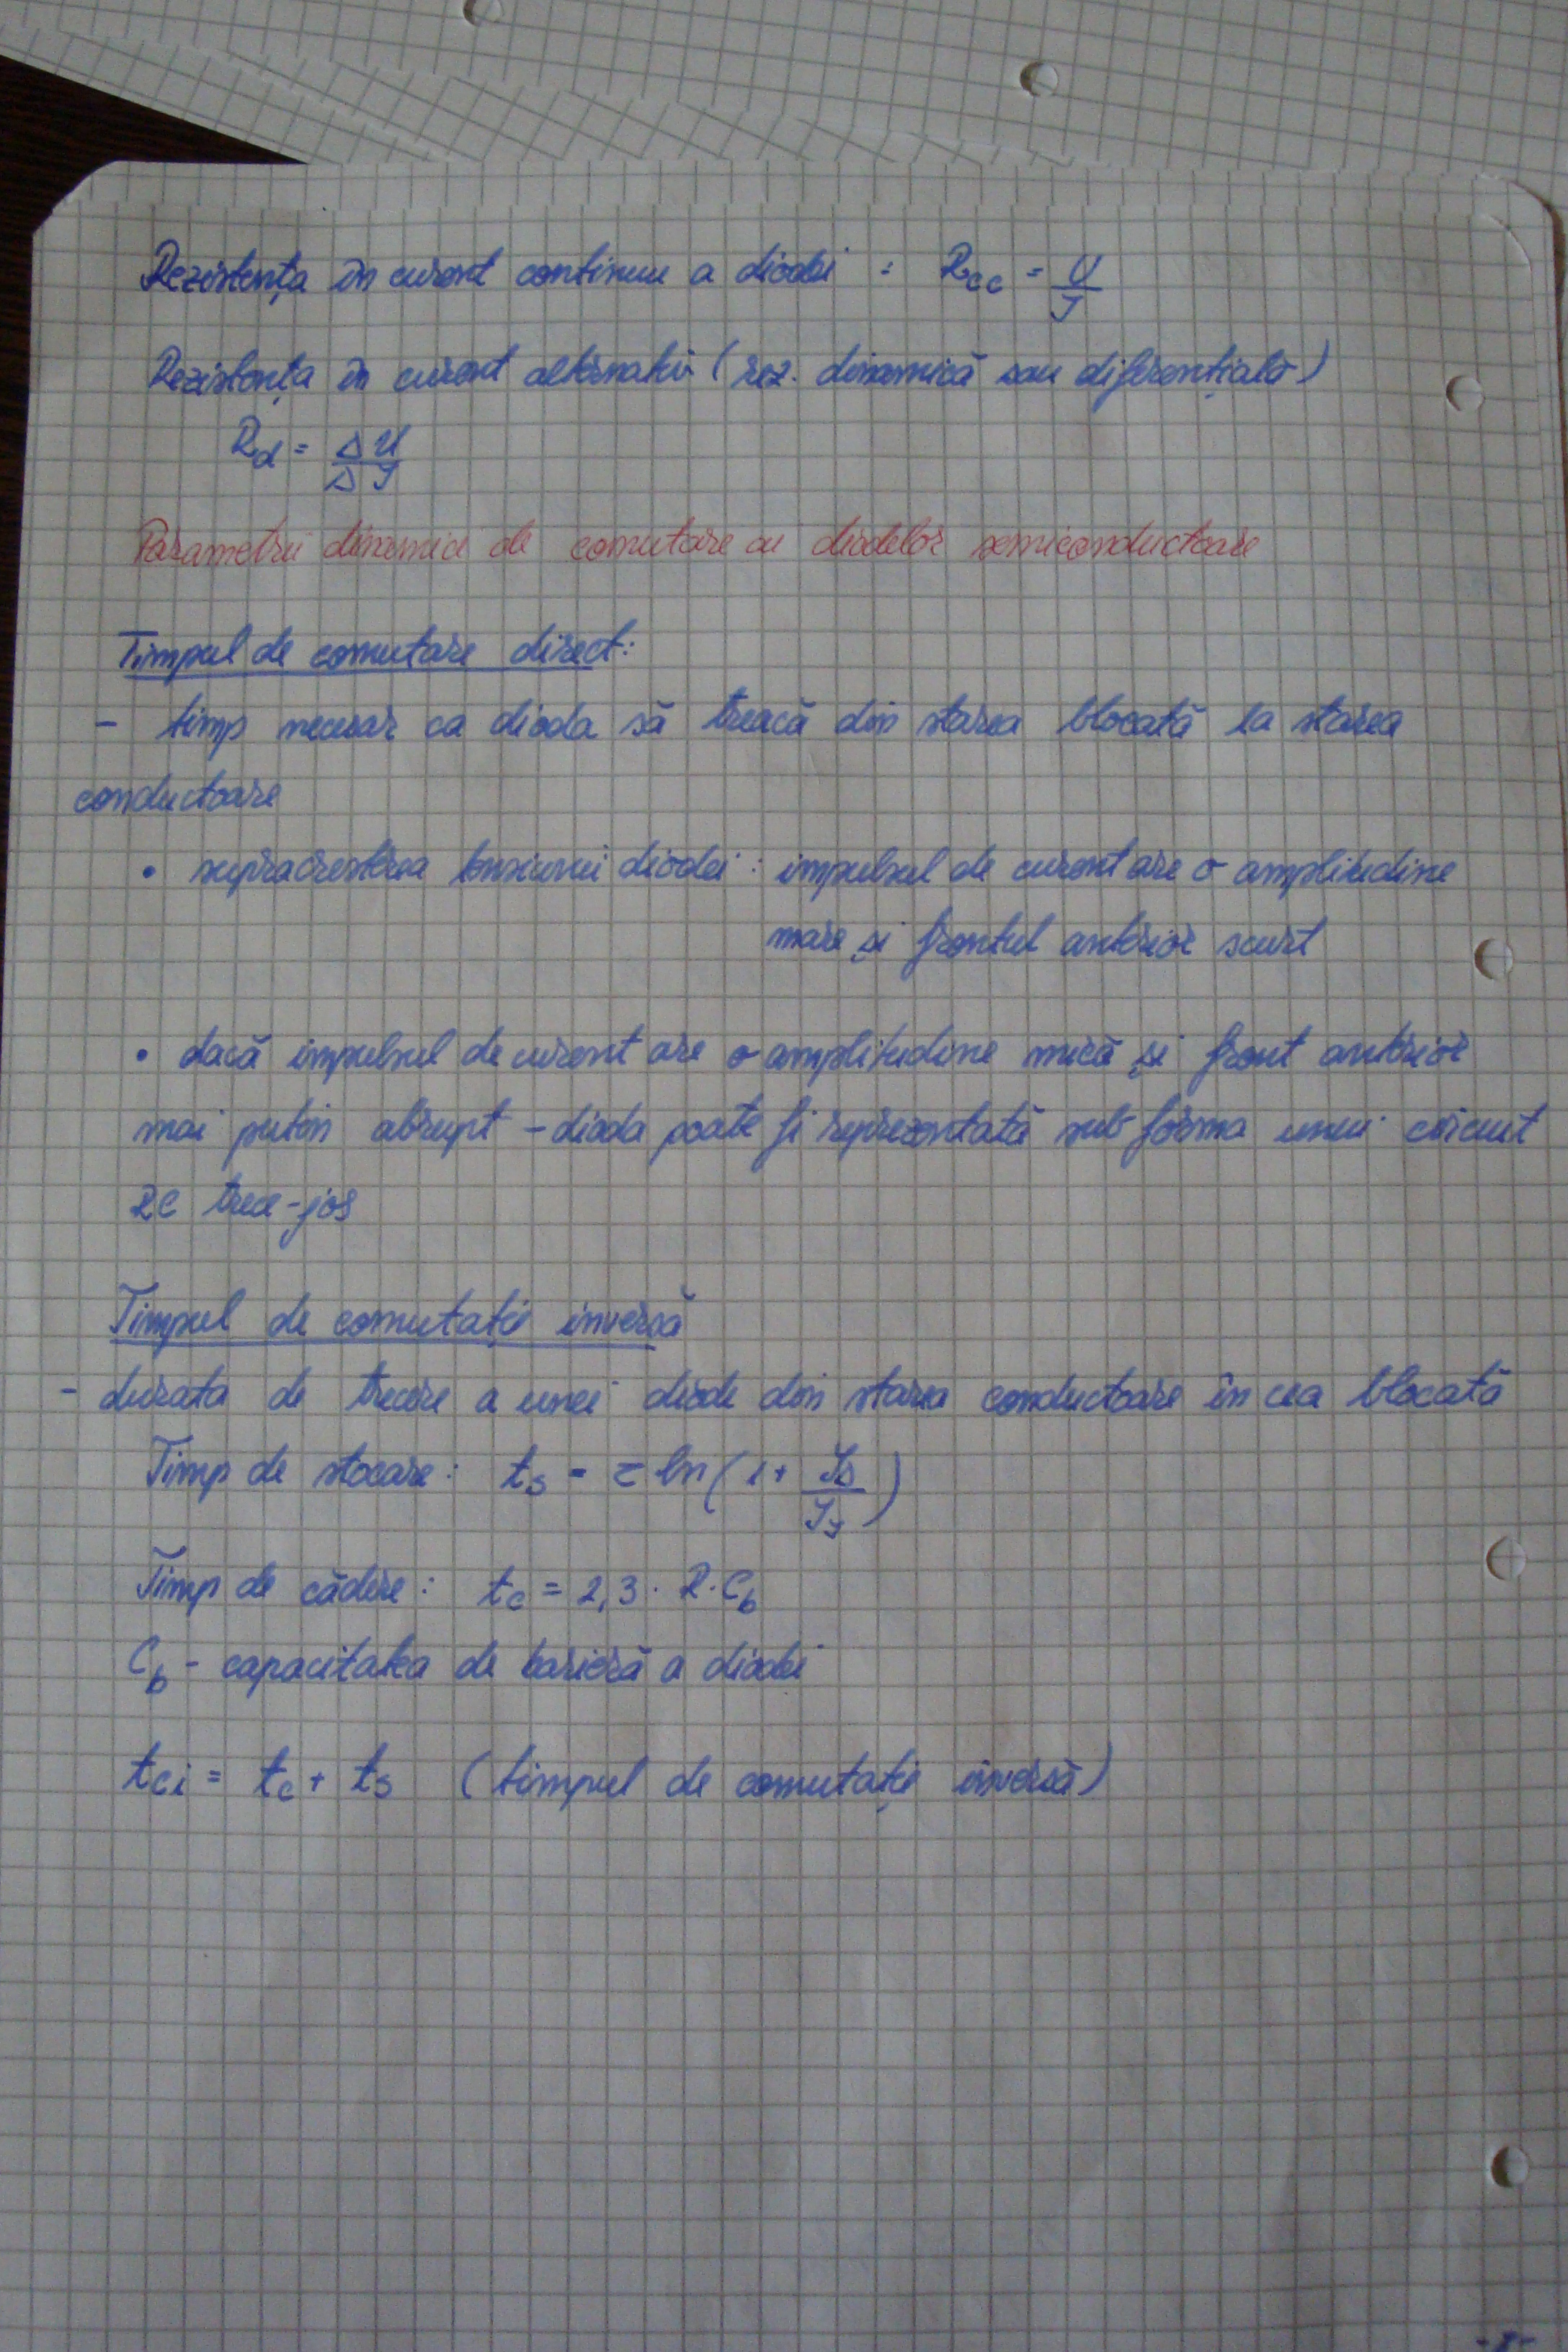 Rezistența în curent continuu a diodei : Rcc = U/I
Rezistența în curent alternativ (rez. dinamică sau diferențială)
Rd = ΔU/ΔI
Parametrii dinamici de comutare ai diodelor semiconductoare
Timpul de comutare direct:
- timp necesar ca dioda să treacă din starea blocată la starea
conductoare
• supracreșterea tensiunii diodei : impulsul de curent are o amplitudine
mare și frontul anterior scurt
• dacă impulsul de curent are o amplitudine mică și front anterior
mai puțin abrupt - dioda poate fi reprezentată sub forma unui circuit
RC trece-jos
Timpul de comutație inversă
- durata de trecere a unei diode din starea conductoare în cea blocată
Timp de stocare: ts = τ ln(1 + ID/II)
Timp de cădere: tc = 2,3 · R · Cb
Cb - capacitatea de barieră a diodei
tci = tc + ts (timpul de comutație inversă)